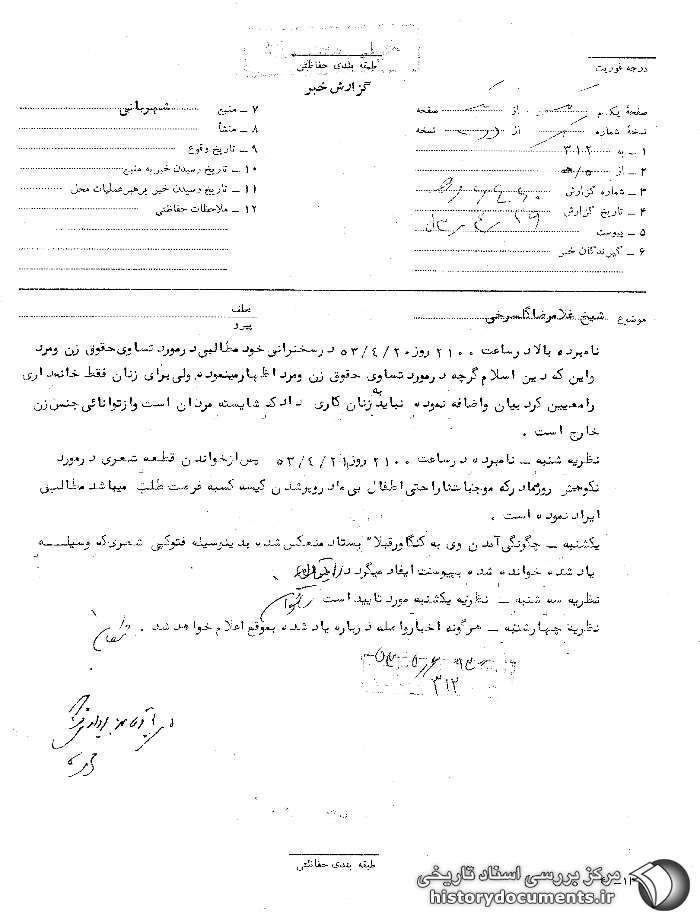 طبقه بندی حفاظتی
گزارش خبر
درجه فوریت
صفحهٔ یکم از صفحه
نسخهٔ شماره از نسخه
۱ ـ به ۳۱۲
۲ ـ از ۵/ه‍
۳ ـ شماره گزارش
۴ ـ تاریخ گزارش
۵ ـ پیوست
۶ ـ گیرندگان خبر
۷ ـ منبع شهربانی
۸ ـ منشأ
۹ ـ تاریخ وقوع
۱۰ ـ تاریخ رسیدن خبر به منبع
۱۱ ـ تاریخ رسیدن خبر برهبر عملیات محل
۱۲ ـ ملاحظات حفاظتی
موضوع شیخ غلامرضا گلسرخی
عطف
پیرو
نامبرده بالا در ساعت ۲۱۰۰ روز ۵۳/۴/۲۰ در سخنرانی خود مطالبی در مورد تساوی حقوق زن ومرد
واین که دین اسلام گرچه در مورد تساوی حقوق زن ومرد اظهار مینموده ولی برای زنان فقط خانه داری
را معیین کرد بیان واضافه نموده نباید به زنان کاری داد که شایسته مردان است واز توانائی جنس زن
خارج است .
نظریه شنبه ـ نامبرده در ساعت ۲۱۰۰ روز ۵۳/۴/۲۱ پس از خواندن قطعه شعری در مورد
نکوهش روزگار که موجبات را حتی اطفال بی مادر و پر شدن کیسه کسبه فرصت طلب میباشد مطالبی
ایراد نموده است .
یکشنبه ـ چگونگی آمدن وی به کنگاور قبلا" بستاد منعکس شده بدینوسیله فتوکپی شعری که وسیله
یاد شده خوانده شده بپیوست ایفاد میگردد
نظریه سه شنبه ـ نظریه یکشنبه مورد تایید است
نظریه چهارشنبه ـ هرگونه اخبار واصله درباره یاد شده بموقع اعلام خواهد شد .
۳۱۲
طبقه بندی حفاظتی
مرکز بررسی اسناد تاریخی
historydocuments.ir